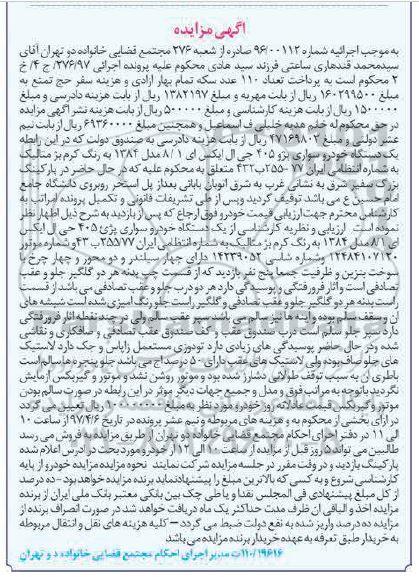 آگهی مزایده
به موجب اجرائیه شماره ۹۶/۰۰۱۱۲ صادره از شعبه ۲۷۶ مجتمع قضایی خانواده دو تهران آقای
سیدمحمد قندهاری ساعتی فرزند سید هادی محکوم علیه پرونده اجرائی ۲۷۶/۹۷/ ج ۴/ خ
۲ محکوم است به پرداخت تعداد ۱۱۰ عدد سکه تمام بهار آزادی و هزینه سفر حج تمتع به
مبلغ ۱۶۰۲۹۹۵۰۰ ریال از بابت مهریه و مبلغ ۱۳۸۲۱۹۷ ریال از بابت هزینه دادرسی و مبلغ
۱۵۰۰۰۰۰ ریال از بابت هزینه کارشناسی و مبلغ ۵۰۰۰۰۰ ریال از بابت هزینه نشر آگهی مزایده
در حق محکوم له خانم هدیه خلیلی ف اسماعیل و همچنین مبلغ ۶۹۳۶۰۰۰۰ ریال از بابت نیم
عشر دولتی و مبلغ ۴۷۱۶۹۸۰۲ ریال از بابت هزینه دادرسی به صندوق دولت که در این رابطه
یک دستگاه خودرو سواری پژو ۴۰۵ جی ال ایکس ای ۸/۱ مدل ۱۳۸۴ به رنگ کرم بژ متالیک
به شماره انتظامی ایران ۷۷-۲۵۵ب۴۳ متعلق به محکوم علیه که در حال حاضر در پارکینگ
بزرگ صفیر شرق به نشانی غرب به شرق اتوبان بابائی بعداز پل استخر روبروی دانشگاه جامع
امام حسین ع می باشد توقیف گردید وپس از طی تشریفات قانونی و تکمیل پرونده مراتب به
کارشناس محترم جهت ارزیابی قیمت خودرو فوق ارجاع که پس از بازدید به شرح ذیل اظهار نظر
نموده است. ارزیابی و نظریه کارشناسی از یک دستگاه خودرو سواری پژوی ۴۰۵ جی ال ایکس
ای ۸/۱ مدل ۱۳۸۴ به رنگ کرم بژ متالیک به شماره انتظامی ایران ۷۷-۲۵۵ب۴۳ و شماره موتور
۱۲۴۸۴۱۰۷۱۲۰ وشماره شاسی ۱۴۲۳۹۰۵۲ دارای چهار سیلندر و دو محور و چهار چرخ با
سوخت بنزین و ظرفیت جمعا پنج نفر بازدید که از قسمت چپ بدنه هر دو گلگیر جلو و عقب
تصادفی است و آثار فرورفتگی و پوسیدگی دارد هر دو درب جلو و عقب تصادفی می باشد از قسمت
راست بدنه هر دو گلگیر جلو و عقب تصادفی و گلگیر راست جلو رنگ آمیزی شده است شیشه های
آن و سقف سالم بوده و آینه ها نیز سالم می باشد سپر عقب سالم ولی در چند نقطه آثار فرورفتگی
دارد سپر جلو سالم است درب صندوق عقب و کف صندوق عقب تصادفی و صافکاری و نقاشی
شده ودر حال حاضر پوسیدگی های زیادی دارد تودوزی مستعمل زاپاس و جک دارد لاستیک
های جلو صاف بوده ولی لاستیک های عقب دارای ۵۰ درصد آج می باشد جلو پنجره ها سالم است
باطری آن به سبب توقف طولانی دشارژ شده بود و موتور روشن نشد و موتور و گیربکس آزمایش
نگردید باتوجه به مراتب فوق و مدل و جمیع جهات دیگر موثر در این رابطه در صورت سالم بودن
موتور و گیربکس قیمت عادلانه روز خودرو مورد نظر به مبلغ ریال تعیین می گردد
در ازای بخشی از محکوم به و هزینه های مربوطه و نیم عشر پرونده در تاریخ ۹۷/۴/۶ از ساعت ۱۰
الی ۱۱ در دفتر اجرای احکام مجتمع قضایی خانواده دو تهران از طریق مزایده به فروش می رسد
طالبین می توانند ۵ روز قبل از مزایده از ساعت ۱۰ الی ۱۲ از خودرو مورد بحث در آدرس اعلام شده
پارکینگ بازدید و در وقت مقرر در جلسه مزایده شرکت نمایند نحوه مزایده مزایده خودرو از پایه
کارشناسی شروع و به کسی که بالاترین مبلغ را پیشنهاد نماید برنده مزایده خواهد بود - ده درصد
از کل مبلغ پیشنهادی فی المجلس نقدا و یا طی چک بین بانکی معتبر بانک ملی ایران از برنده
مزایده اخذ و الباقی آن ظرف مدت حداکثر یک ماه دریافت خواهد شد در صورت انصراف برنده از
مزایده ده درصد واریز شده به نفع دولت ضبط می گردد – کلیه هزینه های نقل و انتقال مربوطه
به خریدار طبق تعرفه به عهده خریدار برنده مزایده می باشد
۱۱۰/۱۹۶۱۶ت مدیر اجرای احکام مجتمع قضایی خانواده دو تهران